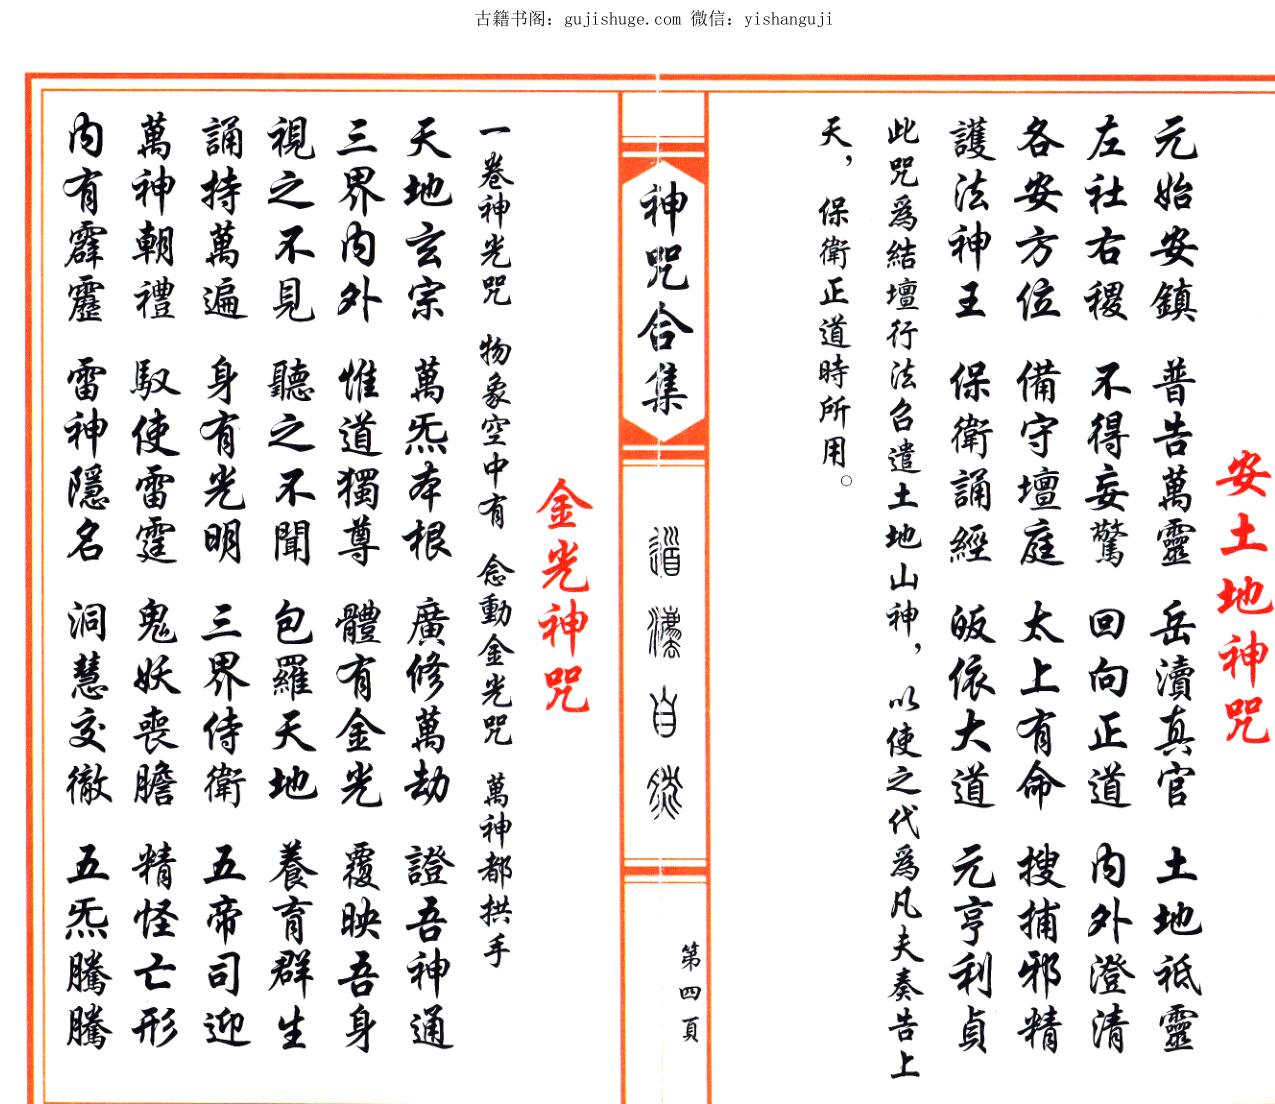 古籍书阁：gujishuge.com 微信：yishanguji
安土地神咒
元始安鎮 普告萬靈 岳瀆真官 土地祇靈
左社右稷 不得妄驚 回向正道 內外澄清
各安方位 備守壇庭 太上有命 搜捕邪精
護法神王 保衛誦經 皈依大道 元亨利貞
此咒爲結壇行法召遣土地山神，以使之代爲凡夫奏告上
天，保衛正道時所用。
神咒合集
道法自然
第四頁
金光神咒
一卷神光咒 物象空中有 念動金光咒 萬神都拱手
天地玄宗 萬炁本根 廣修萬劫 證吾神通
三界內外 惟道獨尊 體有金光 覆映吾身
視之不見 聽之不聞 包羅天地 養育群生
誦持萬遍 身有光明 三界侍衛 五帝司迎
萬神朝禮 馭使雷霆 鬼妖喪膽 精怪亡形
內有霹靂 雷神隱名 洞慧交徹 五炁騰騰